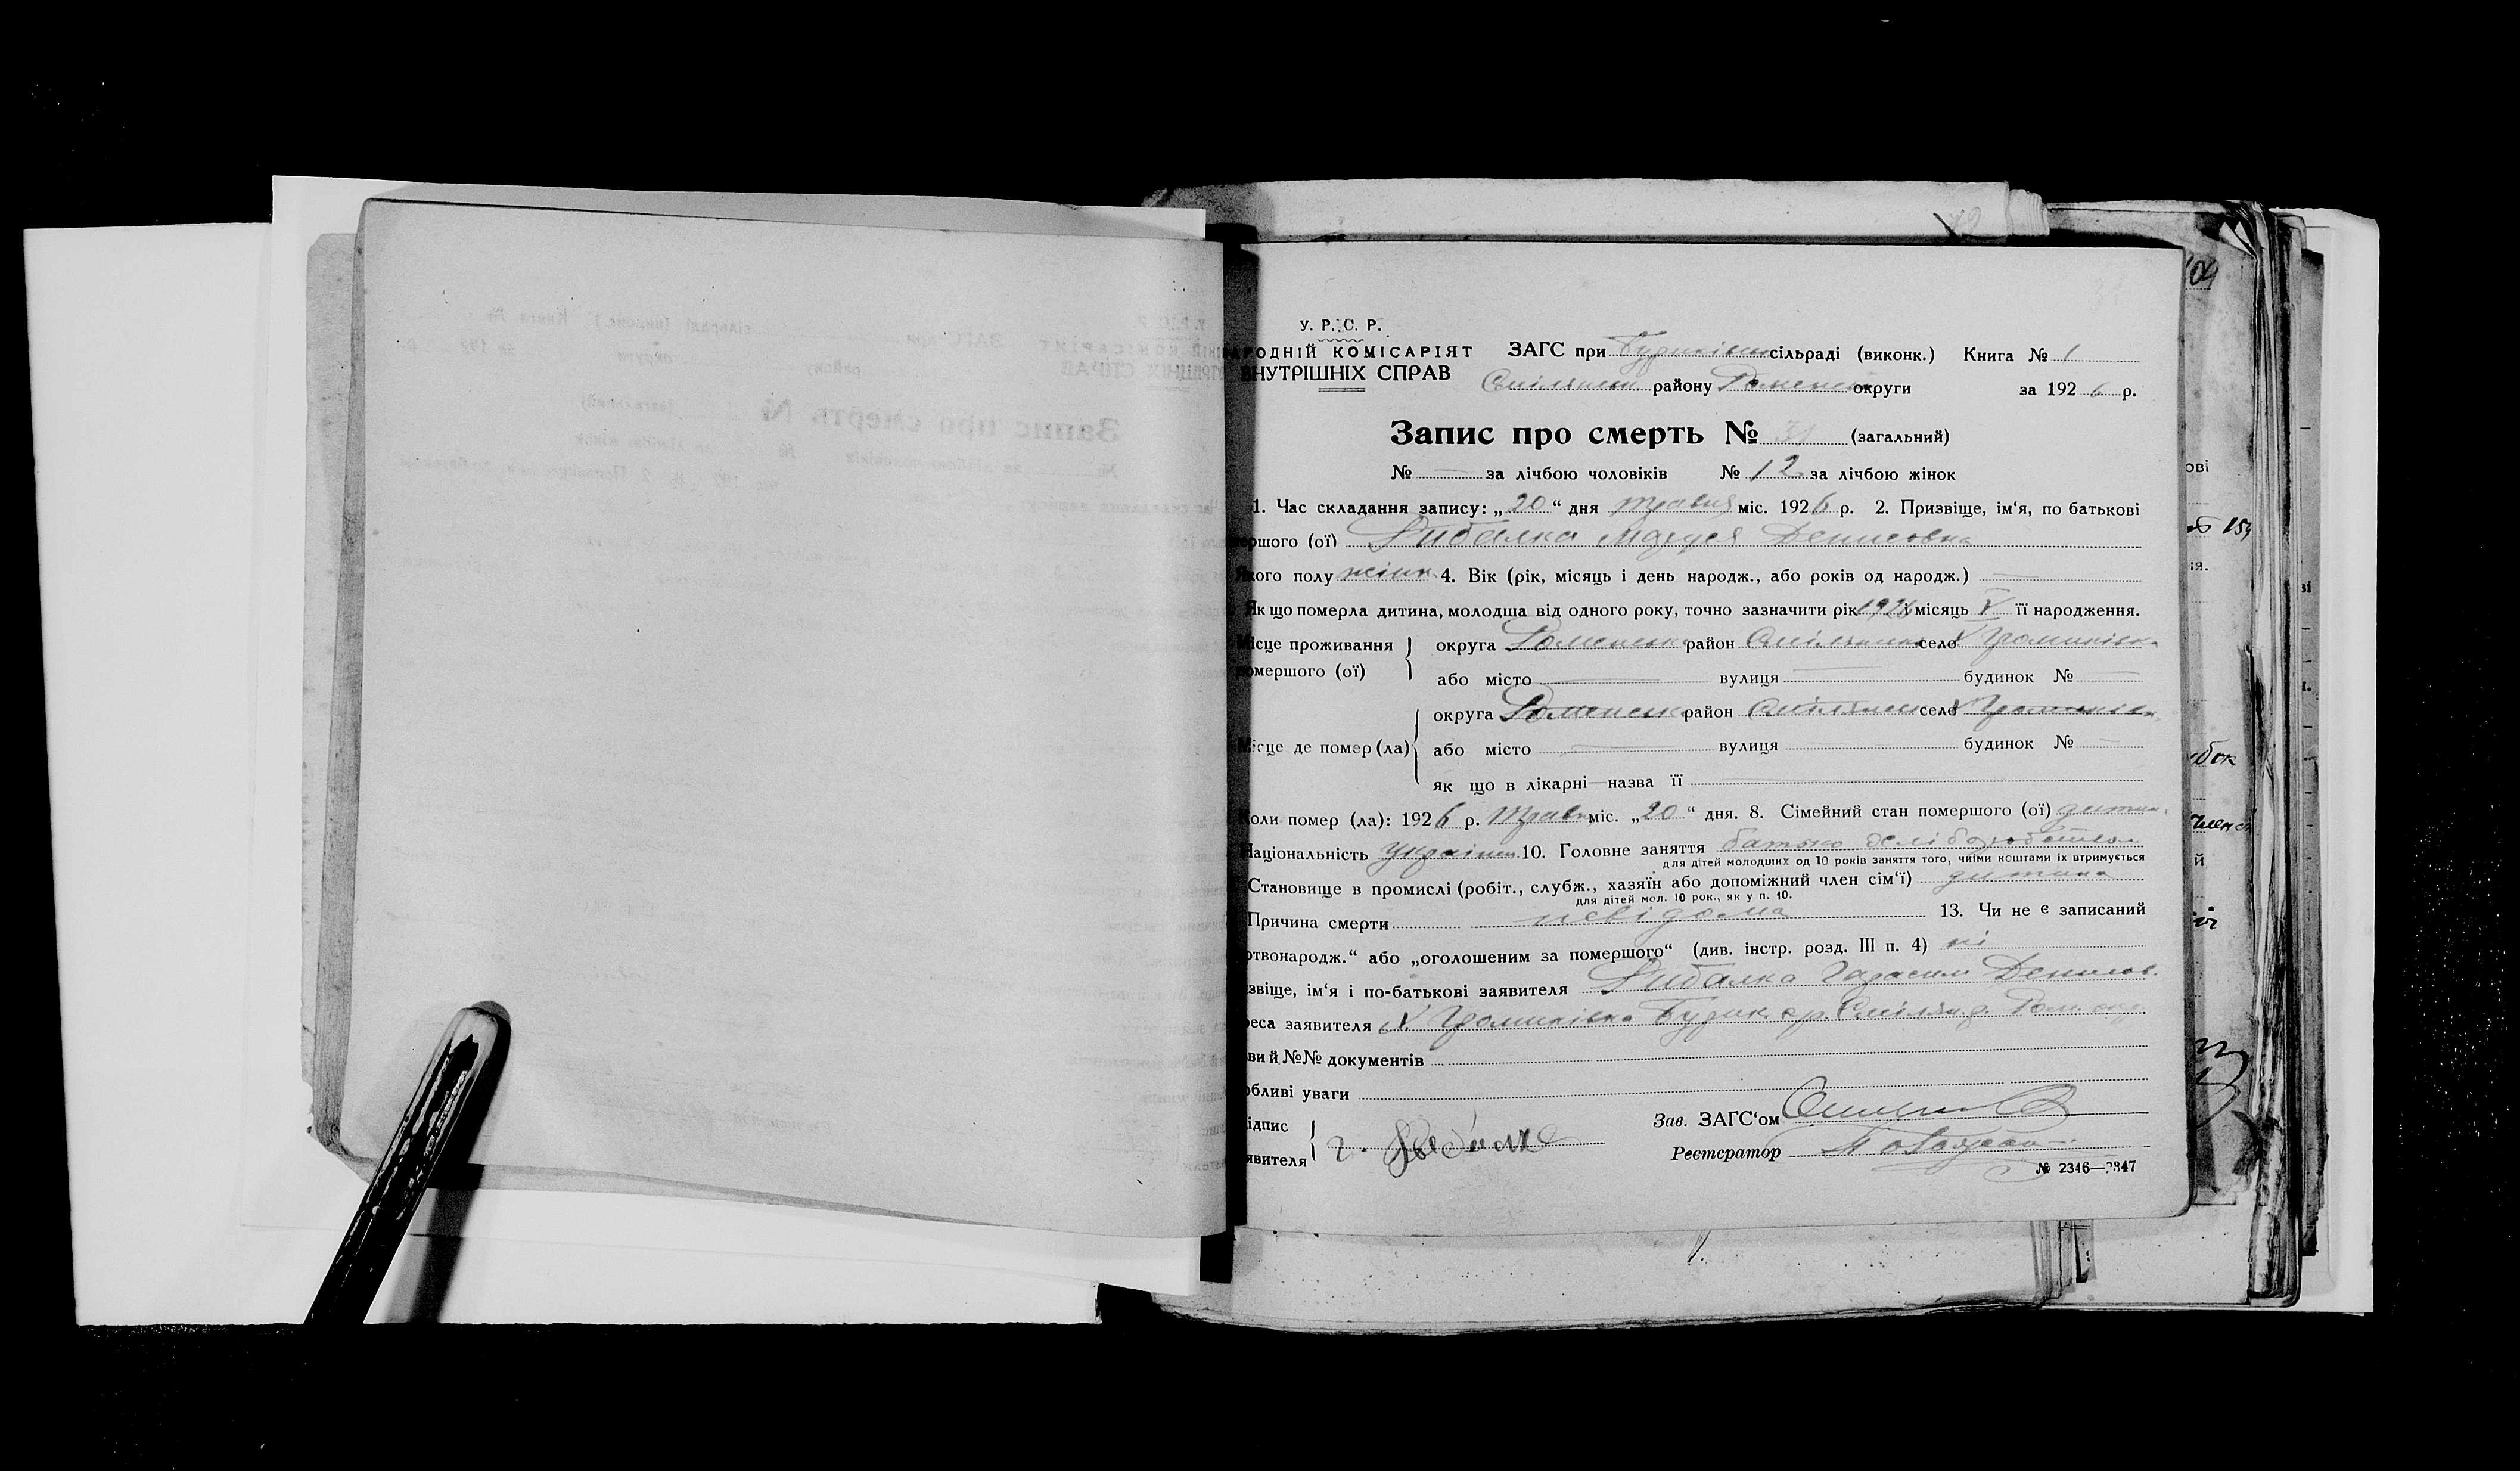 У. Р. С. Р.
РОДНІЙ КОМІСАРІЯТ ЗАГС при сільраді (виконк.) Книга № 1
ВНУТРІШНІХ СПРАВ району округи за 1926 р.
Запис про смерть № 31 (загальний)
№ — за лічбою чоловіків № 12 за лічбою жінок
1. Час складання запису: „20“ дня травня міс. 1926 р. 2. Призвіще, ім‘я, по батькові
ршого (ої) Рибалка Маруся Денисовна
кого полу жіин. 4. Вік (рік, місяць і день народж., або років од народж.) —
Як що померла дитина, молодша від одного року, точно зазначити рік 1926 місяць V її народження.
ісце проживання округа Роменськ район село
омершого (ої) або місто — вулиця — будинок № —
округа Роменськ район село
ісце де помер (ла) або місто — вулиця будинок № —
як що в лікарні—назва її
Коли помер (ла): 1926 р. Травн міс. „20“ дня. 8. Сімейний стан помершого (ої) дитин.
Національність україн. 10. Головне заняття батько хліборобством
для дітей молодших од 10 років заняття того, чиїми коштами їх втримується
Становище в промислі (робіт., служб., хазяїн або допоміжний член сім‘ї) дитина
для дітей мол. 10 рок., як у п. 10.
Причина смерти невідома 13. Чи не є записаний
ртвонародж.“ або „оголошеним за помершого“ (див. інстр. розд. III п. 4) ні
звіще, ім‘я і по-батькові заявителя Рибалка Гарасим Денисов.
реса заявителя
ви й №№ документів
обливі уваги
ідпис Зав. ЗАГС‘ом
явителя Г. Реєтсратор
№ 2346—2347